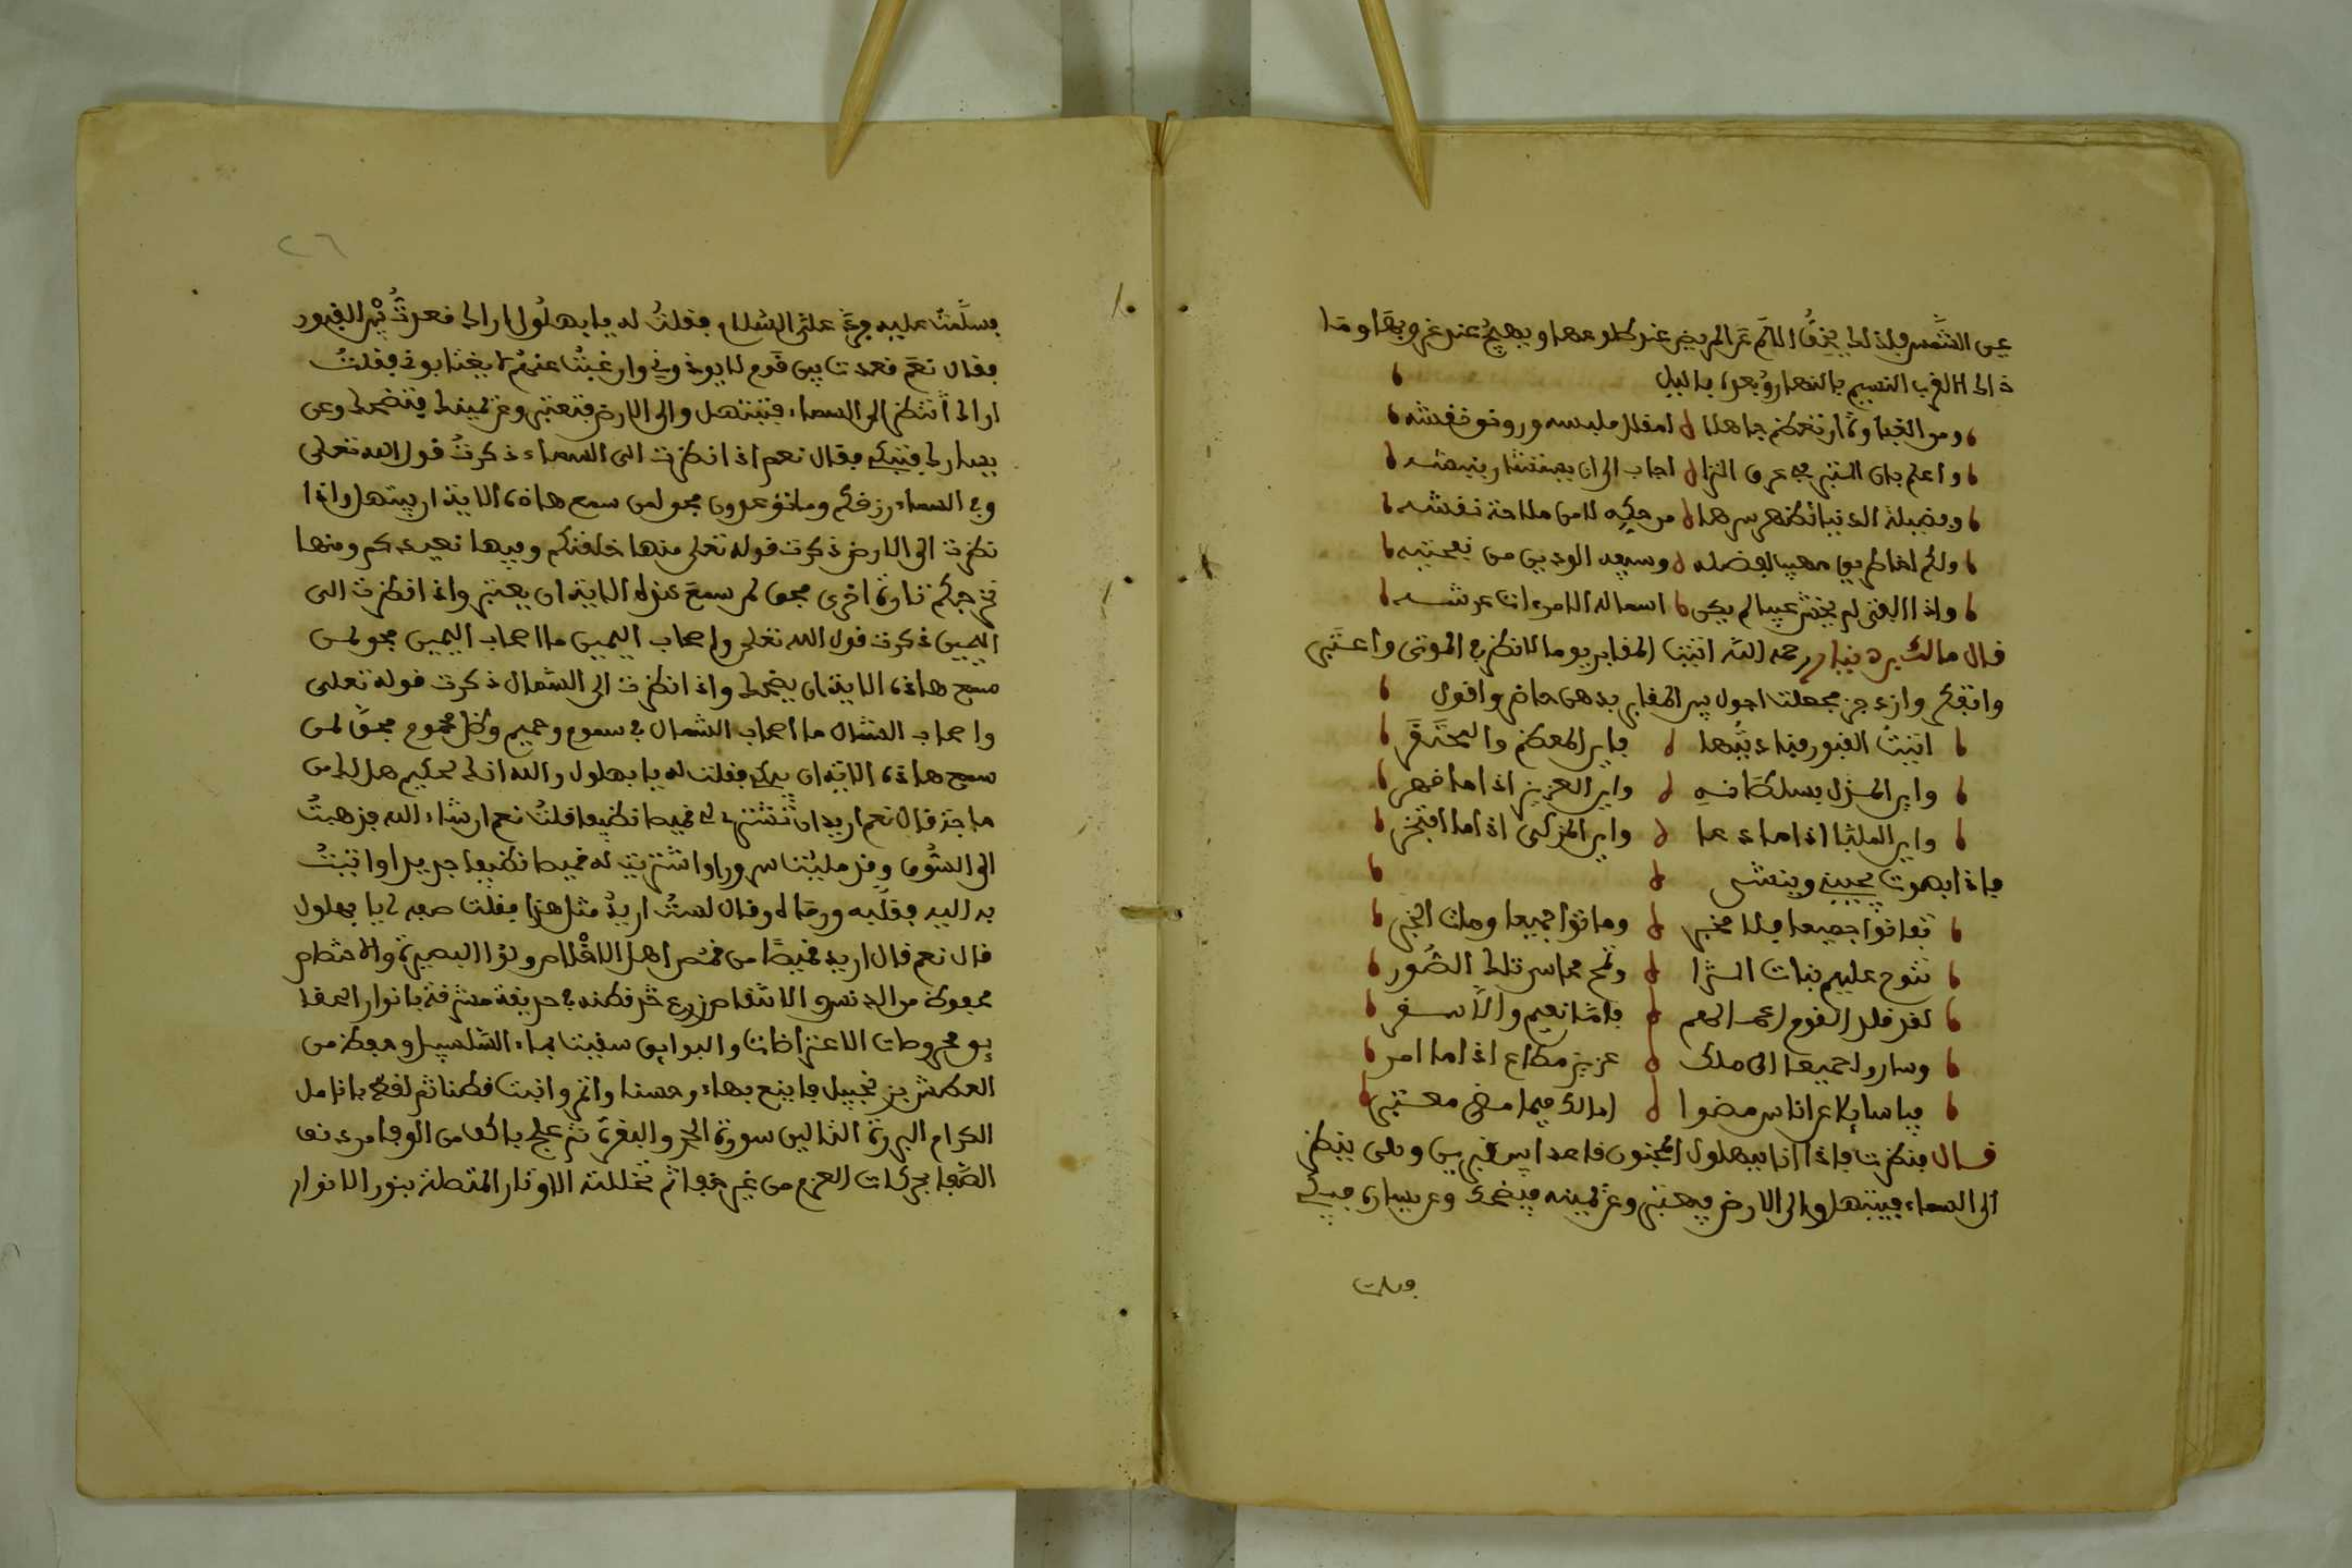 عين الشمس فلذلك يخف الالم عن المريض عند طلوعها ويهيج عند غروبها وما
ذالك الا لقرب النسيم بالنهار وبعده بالليل
ومن الغباوة ان تعظم جاهلا لصقال ملبسه ورونق نقشه
واعلم بان التبر في عرق الثرا
وفضيلة الدينار يظهر سرها من حكه لا من ملاحة نقشه
واذا الفتى لم يخش عيبا لم يكن اسماله الا مراتب عرشه
قال مالك بن دينار رحمه الله اتيت المقابر يوما لانظر في الموتى واعتبر
واتفكر وازدجر فجعلت اجول بين المقابر بذهن حاضر واقول
اتيت القبور فناديتها فاين المعظم والمحتقر
واين المذل بسلطانه واين العزيز اذا ما قهر
واين الملبا اذا ما دعا واين المزكى اذا ما افتخر
فاذا بصوت يجيبني وينشد
تفانوا جميعا فلا مخبر وماتوا جميعا ومات الخبر
تنوح عليهم بنات الثرا وتمح محاسن تلك الصور
لقد قلد القوم اعمالهم فاما نعيم والا سقر
وساروا جميعا الى ملك عزيز مطاع اذا ما امر
فيا سايلا عن اناس مضوا امالك فيما مضى معتبر
قال فنظرت فاذا انا ببهلول المجنون قاعدا بين قبرين وهى ينظر
الى السماء فيبتهل والى الارض فيعتبر وعن يمينه فيضحك وعن يساره فيبكي
فسلمت
فسلمت عليه فرد علي السلام فقلت له يا بهلول اراك قعدت بين القبور
فقال نعم قعدت بين قوم لا يوذونى وان غبت عنهم لا يغتابونى فقلت
اراك تنظر الى السماء فتبتهل والى الارض فتعتبر وعن يمينك فتضحك وعن
يسارك فتبكي فقال نعم اذا نظرت الى السماء ذكرت قول الله تعلى
وفي السماء رزقكم وما توعدون فحق لمن سمع هاذه الاية ان يبتهل واذا
نظرت الى الارض ذكرت قوله تعلى منها خلقنكم وفيها نعيدكم ومنها
نخرجكم تارة اخرى فحق لمن سمع هذه الاية ان يعتبر واذا نظرت الى
اليمين ذكرت قول الله تعلى واصحاب اليمين ما اصحاب اليمين فحق لمن
سمع هاذه الاية ان يضحك واذا نظرت الى الشمال ذكرت قوله تعلى
واصحاب الشمال ما اصحاب الشمال في سموم وحميم وظل من يحموم فحق لمن
سمع هاذه الاية ان يبكي فقلت له يا بهلول والله انك لحكيم هل لك من
حاجة قال نعم اريد ان تشتري لي قميصا نظيفا قلت نعم ان شاء الله فذهبت
الى السوق وقد مليت سرورا واشتريت له قميصا نظيفا جديدا واتيت
به اليه فقلبه ورماه لي وقال لست اريد مثل هذا فقلت صفه لي يا بهلول
قال نعم قال اريد قميصا من قمص اهل الاخلاص
محفوظ من الدنس والانتقاص زرع قطنه في حديقة مشرقة بانوار الحقا
العطش بزنجبيل فاينع بهاء وحسنا واثمر وانبت قطنا ثم لقط بانامل
الكرام البررة التالين سورة الحجر والبقرة
الصفا بحركات العزم من غير خفا ثم تخللته الاوتار المتصلة بنور الانوار